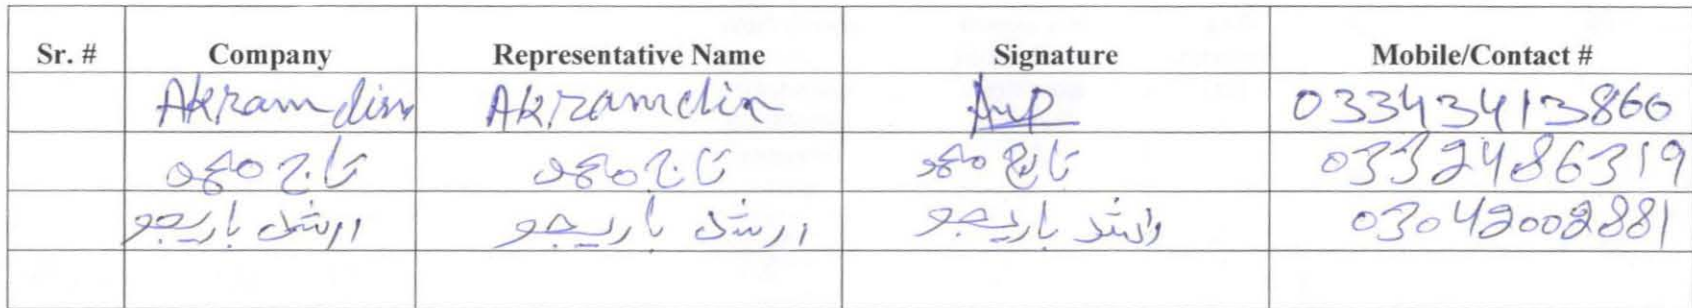 Sr. # Company Representative Name Signature Mobile/Contact #
Akramdin Akramdin 03343413860
تاج محمد تاج محمد تاج محمد 0332486319
ارشد باریجو ارشد باریجو ارشد باریجو 03042002881